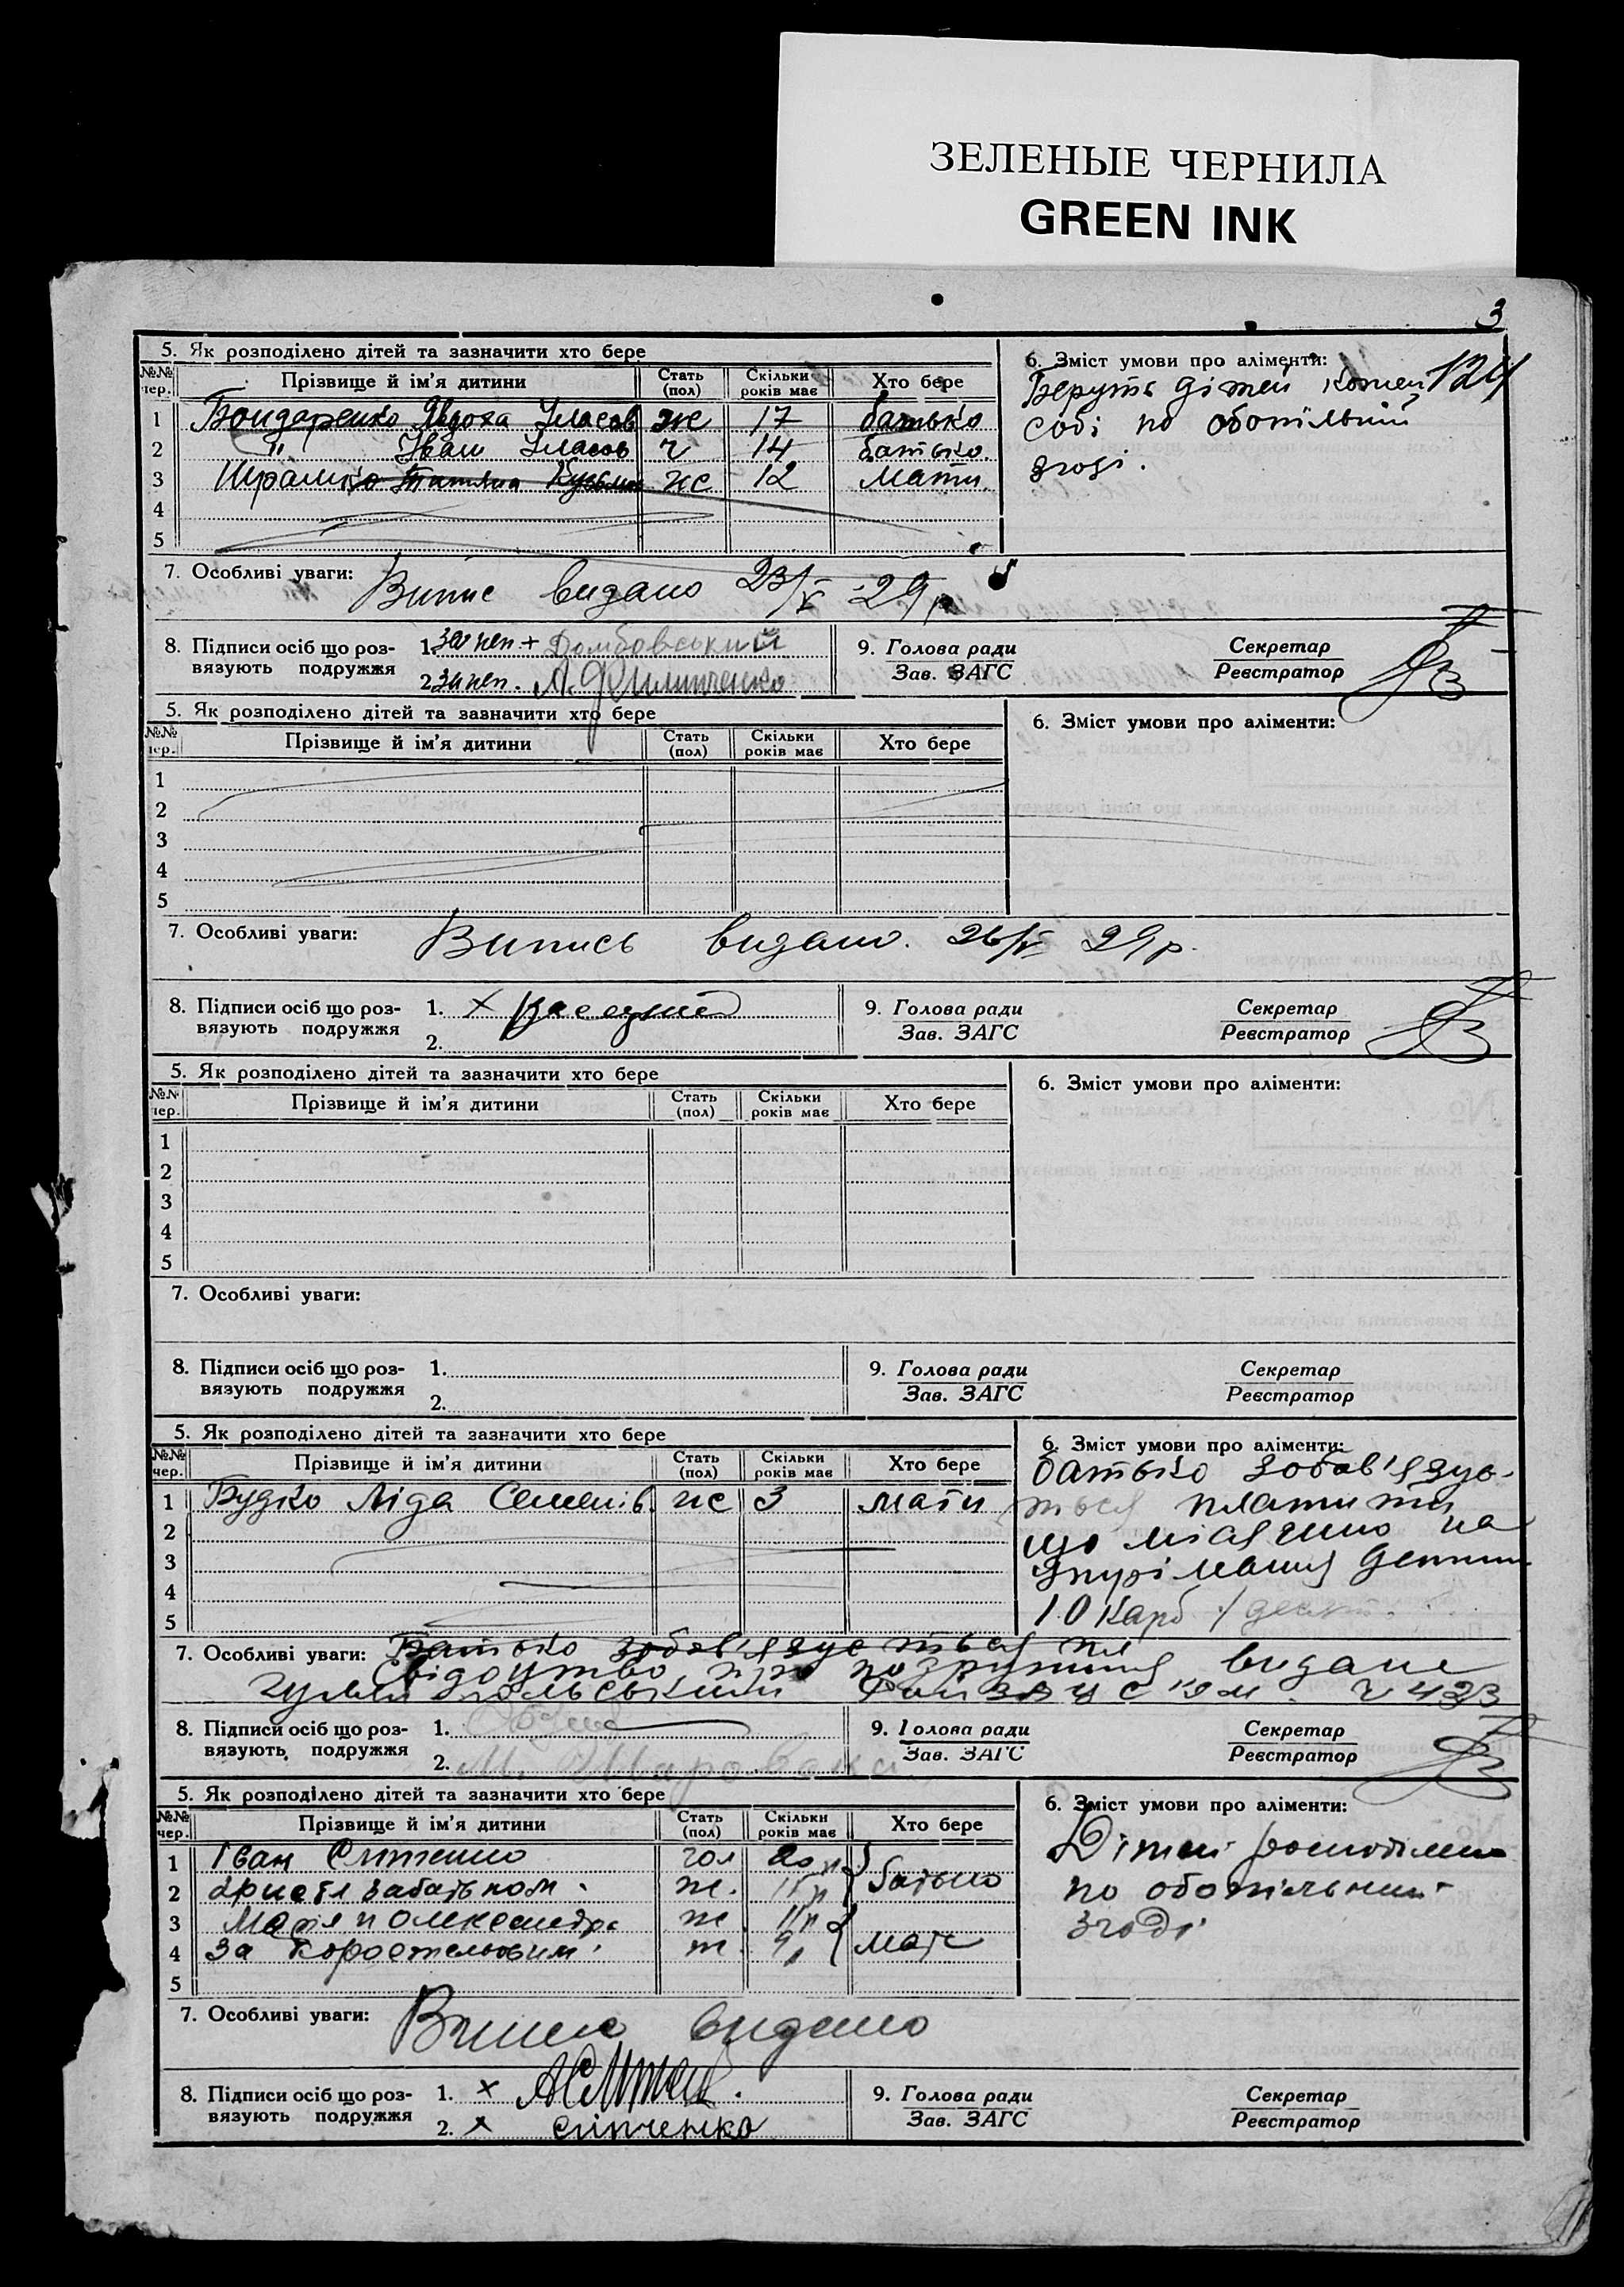 ЗЕЛЕНЫЕ ЧЕРНИЛА
GREEN INK
3
124
5. Як розподілено дітей та зазначити хто бере
№№ чер. Прізвище й ім'я дитини Стать (пол) Скільки років має Хто бере
1 Бондаренко Явдоха Уласов ж 17 батько
2 " Іван Уласов ч 14 батько
3 Шрамко Татяна Кузьмів ж 12 мати
4
5
6. Зміст умови про аліменти:
Беруть дітей кожен
собі по обопільній
згоді.
7. Особливі уваги: Випис видано 23/V-29 р
8. Підписи осіб що роз-
вязують подружжя
1. за неп. + Домбовський
2. за неп. А. Филипченко
9. Голова ради
Зав. ЗАГС
Секретар
Реєстратор
5. Як розподілено дітей та зазначити хто бере
№№ чер. Прізвище й ім'я дитини Стать (пол) Скільки років має Хто бере
1
2
3
4
5
6. Зміст умови про аліменти:
7. Особливі уваги: Випись видано. 26/V 29 р.
8. Підписи осіб що роз-
вязують подружжя
1. х
2.
9. Голова ради
Зав. ЗАГС
Секретар
Реєстратор
5. Як розподілено дітей та зазначити хто бере
№№ чер. Прізвище й ім'я дитини Стать (пол) Скільки років має Хто бере
1
2
3
4
5
6. Зміст умови про аліменти:
7. Особливі уваги:
8. Підписи осіб що роз-
вязують подружжя
1.
2.
9. Голова ради
Зав. ЗАГС
Секретар
Реєстратор
5. Як розподілено дітей та зазначити хто бере
№№ чер. Прізвище й ім'я дитини Стать (пол) Скільки років має Хто бере
1 Будко Ліда Семенів. ж 3 мати
2
3
4
5
6. Зміст умови про аліменти:
батько зобов'язує-
ться платити
що місячно на
дитини
10 карб
7. Особливі уваги: Батько зобов'язується пл
Свідоцтво про видане
ч 423
8. Підписи осіб що роз-
вязують подружжя
1.
2. М. Шарована
9. Голова ради
Зав. ЗАГС
Секретар
Реєстратор
5. Як розподілено дітей та зазначити хто бере
№№ чер. Прізвище й ім'я дитини Стать (пол) Скільки років має Хто бере
1 Іван гол
2 за батьком ж. батько
3 Марія и Олександра ж 11
4 за ж. 9 мати
5
6. Зміст умови про аліменти:
Дітей
по обопільний
згоді
7. Особливі уваги: Випис видано
8. Підписи осіб що роз-
вязують подружжя
1. х
2. х сліпченко
9. Голова ради
Зав. ЗАГС
Секретар
Реєстратор